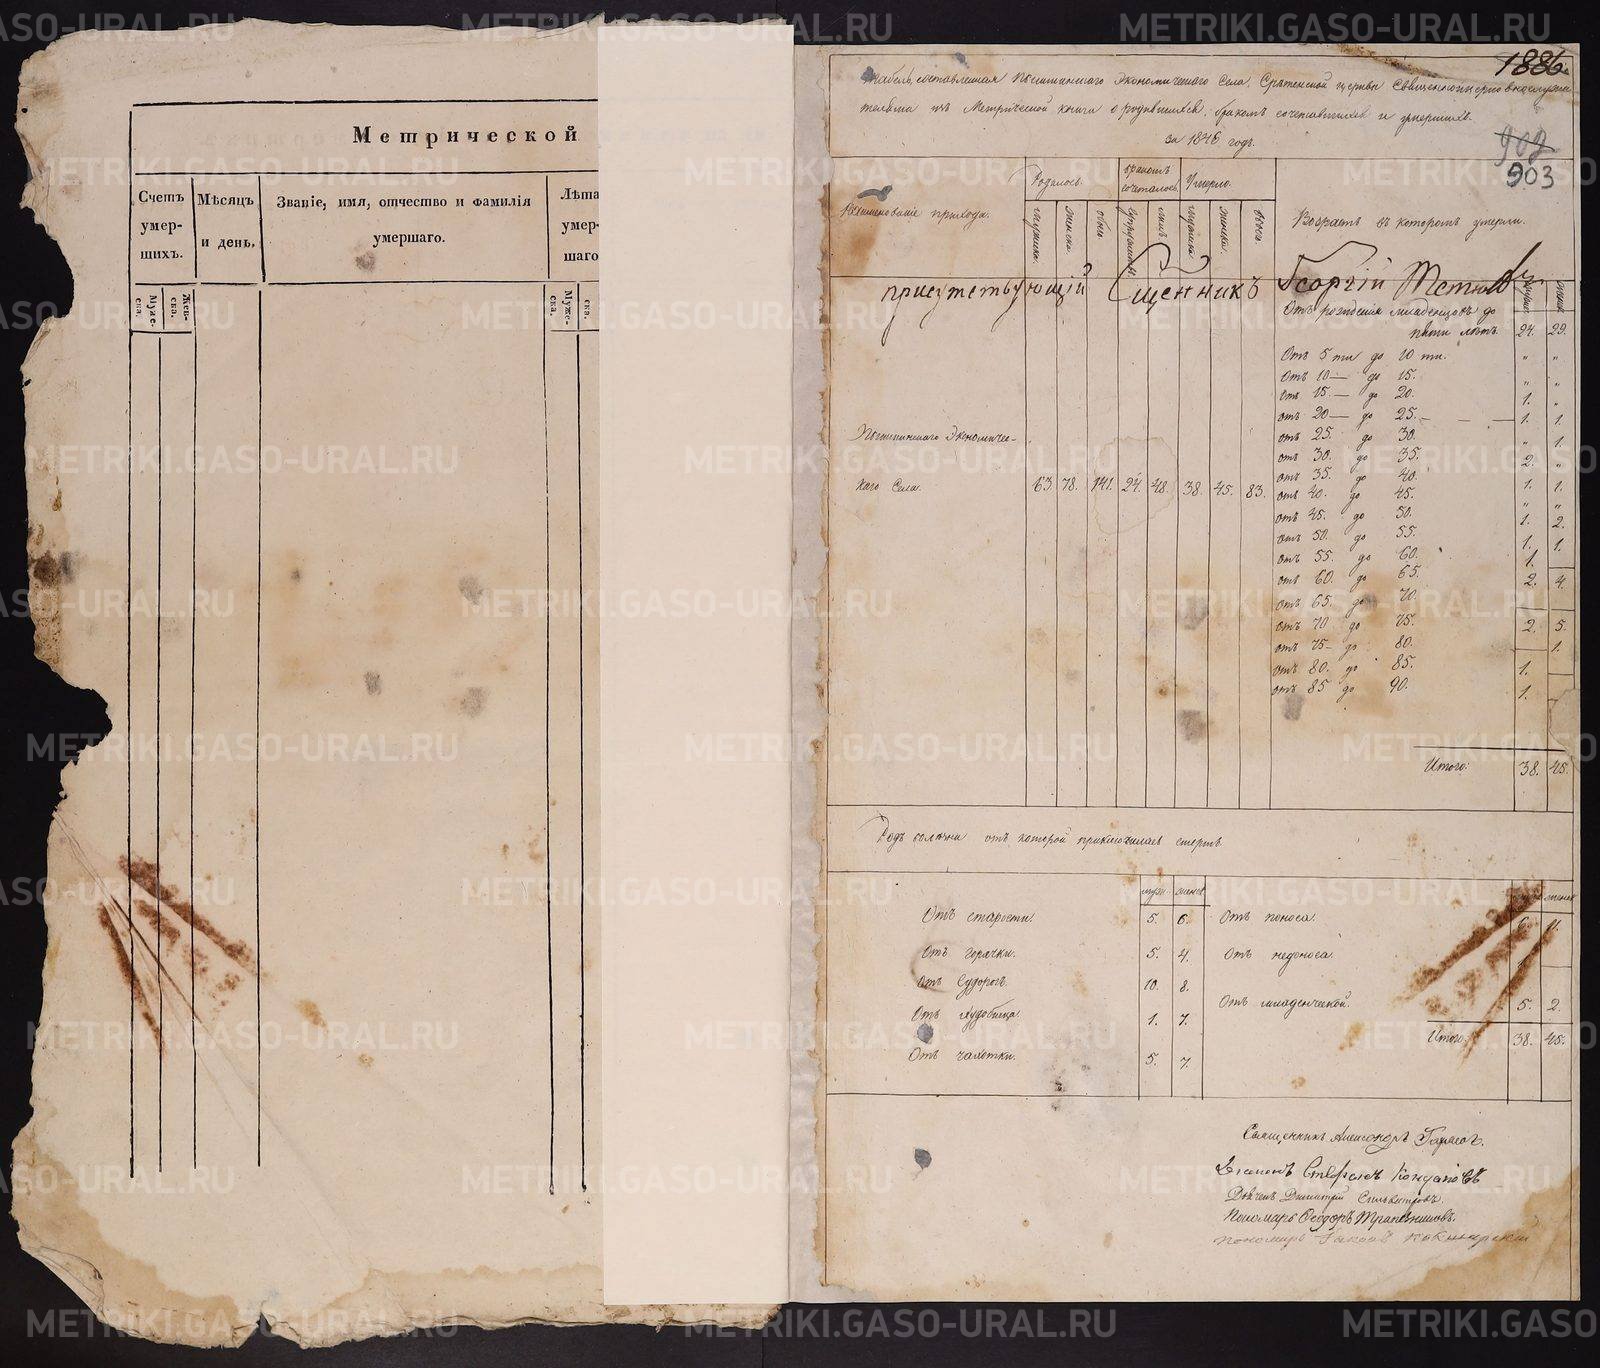 Метрической
Счетъ умер- шихъ.
Мѣсяцъ и день.
Званіе, имя, отчество и фамилія умершаго.
Лѣта умер- шаго
Муже- ска.
Жен- ска.
Муже- ска.
ска.
1886.
Табель, составленная Экономическаго Села, Срѣтенской церкви Священноцерковнослужи
телями изъ Метрической книги о родившихся, бракомъ сочетавшихся и умершихъ.
за 1846 годъ.
902
903
Наименованіе прихода.
Родилось.
бракомъ сочеталось
Умерло.
Возрастъ въ которомъ умерли.
мужска.
женска.
обоего
мужска.
женска.
обоего.
присутствующій Сщенникъ Георгій
Отъ рожденія младенцовъ до
пяти лѣтъ. 24. 29.
Отъ 5 ти до 10 ти. " "
Отъ 10 — до 15. " "
Отъ 15. — до 20. 1. "
отъ 20 — до 25. — 1. 1.
отъ 25. до 30. " 1.
отъ 30. до 35. 2. "
отъ 35. до 40. 1. 1.
отъ 40. до 45. " "
отъ 45. до 50. 1. 2.
отъ 50. до 55. 1. 1.
отъ 55. до 60. 1.
отъ 60. до 65. 2. 4.
отъ 65. до 70.
отъ 70 до 75. 2. 5.
отъ 75 — до 80. 1.
отъ 80. до 85. 1.
отъ 85 до 90. 1.
Экономичес-
каго Села. 63. 78. 141. 24. 48. 38. 45. 83.
Итого: 38. 45.
Родъ болѣзни отъ которой приключилась смерть
муж. женск
Отъ старости. 5. 6.
Отъ горячки. 5. 4.
Отъ Судорогъ. 10. 8.
Отъ 1. 7.
Отъ чахотки. 5. 7.
Отъ поноса. 6. 11.
Отъ недоноса.
Отъ младенческой. 5. 2.
Итого: 38. 45.
Священникъ Александръ
Діаконъ Стефанъ
Дьячекъ Димитрій Сильвестровъ.
Пономарь Ѳеодоръ
пономарь
METRIKI.GASO-URAL.RU